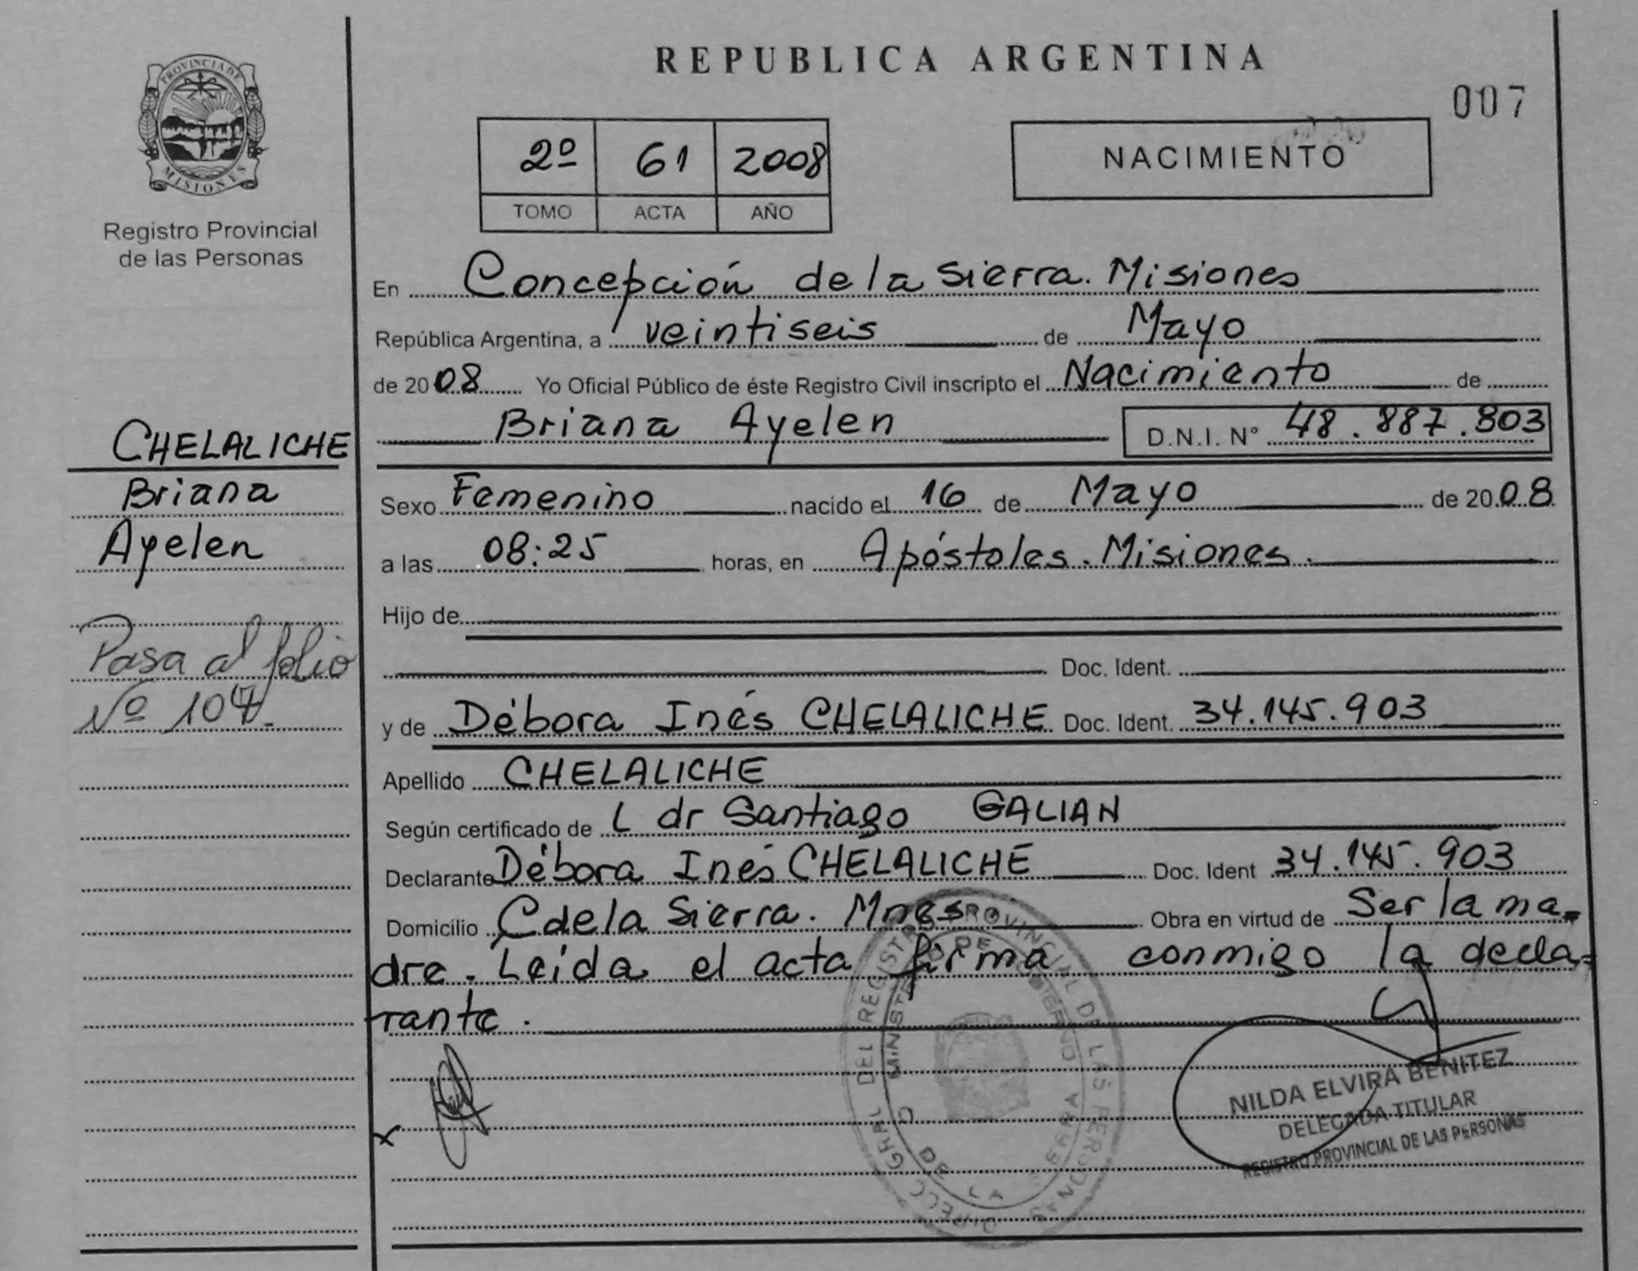 PROVINCIA DE
MISIONES
Registro Provincial
de las Personas
CHELALICHE
Briana
Ayelen
Pasa al folio
Nº 107.
REPUBLICA ARGENTINA
007
2º 61 2008
TOMO ACTA AÑO
NACIMIENTO
En Concepción de la Sierra. Misiones
República Argentina, a veintiseis de Mayo
de 2008 Yo Oficial Público de éste Registro Civil inscripto el Nacimiento de
Briana Ayelen D.N.I. Nº 48.887.803
Sexo Femenino nacido el 16 de Mayo de 2008
a las 08:25 horas, en Apóstoles. Misiones.
Hijo de
Doc. Ident.
y de Débora Inés CHELALICHE Doc. Ident. 34.145.903
Apellido CHELALICHE
Según certificado de L dr Santiago GALIAN
Declarante Débora Inés CHELALICHE Doc. Ident 34.145.903
Domicilio C de la Sierra. Mnes Obra en virtud de Ser la ma-
dre. Leida el acta firma conmigo la decla-
rante.
x
NILDA ELVIRA BENITEZ
DELEGADA TITULAR
REGISTRO PROVINCIAL DE LAS PERSONAS